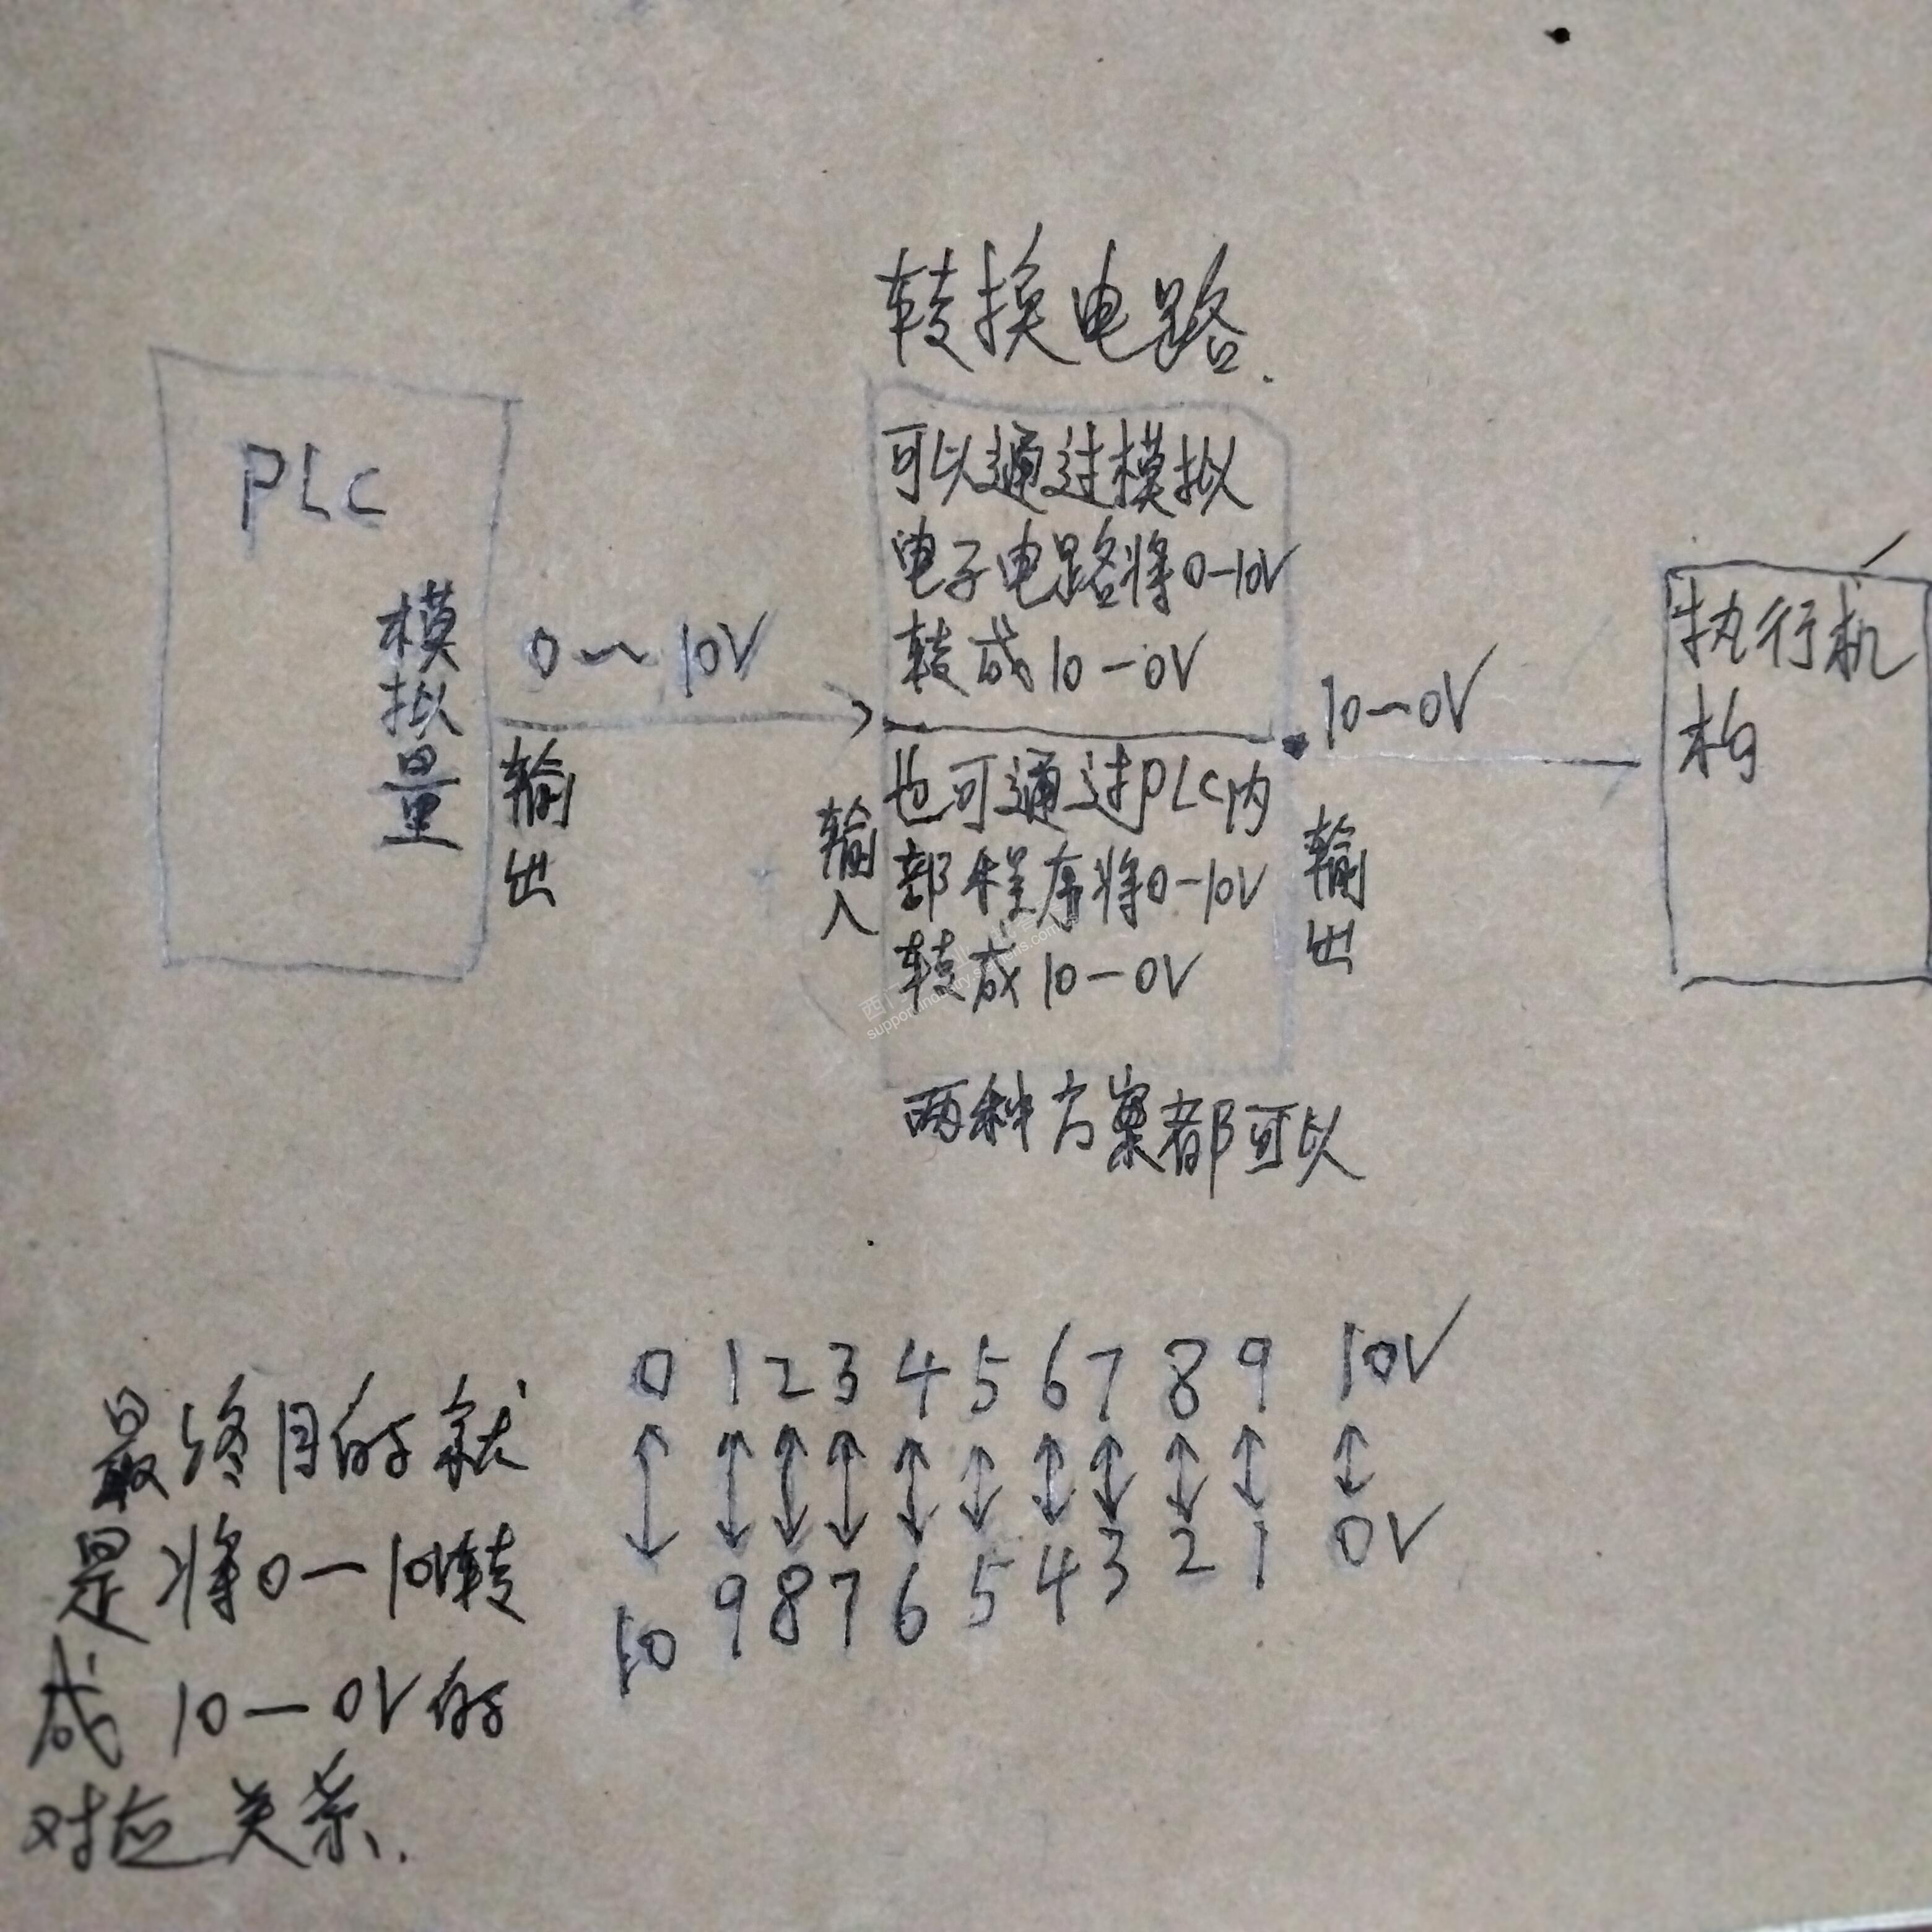 转换电路.
PLC
模拟量
0～10V
输出
输入
可以通过模拟
电子电路将0-10V
转成10-0V
也可通过PLC内
部程序将0-10V
转成10-0V
两种方案都可以
10-0V
输出
执行机
构
最终目的就
是将0-10V转
成 10-0V的
对应关系.
0 1 2 3 4 5 6 7 8 9 10V
10 9 8 7 6 5 4 3 2 1 0V